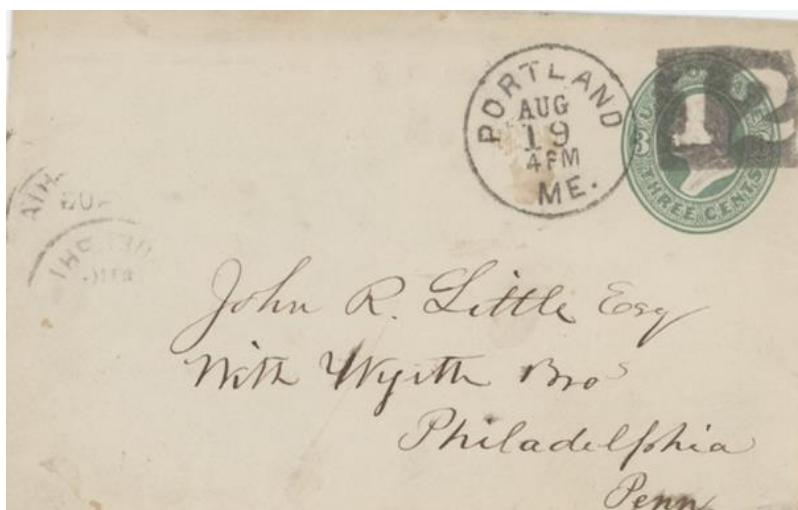 PORTLAND
AUG
19
4 PM
ME.
U.S. POSTAGE
THREE CENTS
12
John R. Little Esq
With Wyeth Bros
Philadelphia
Penn